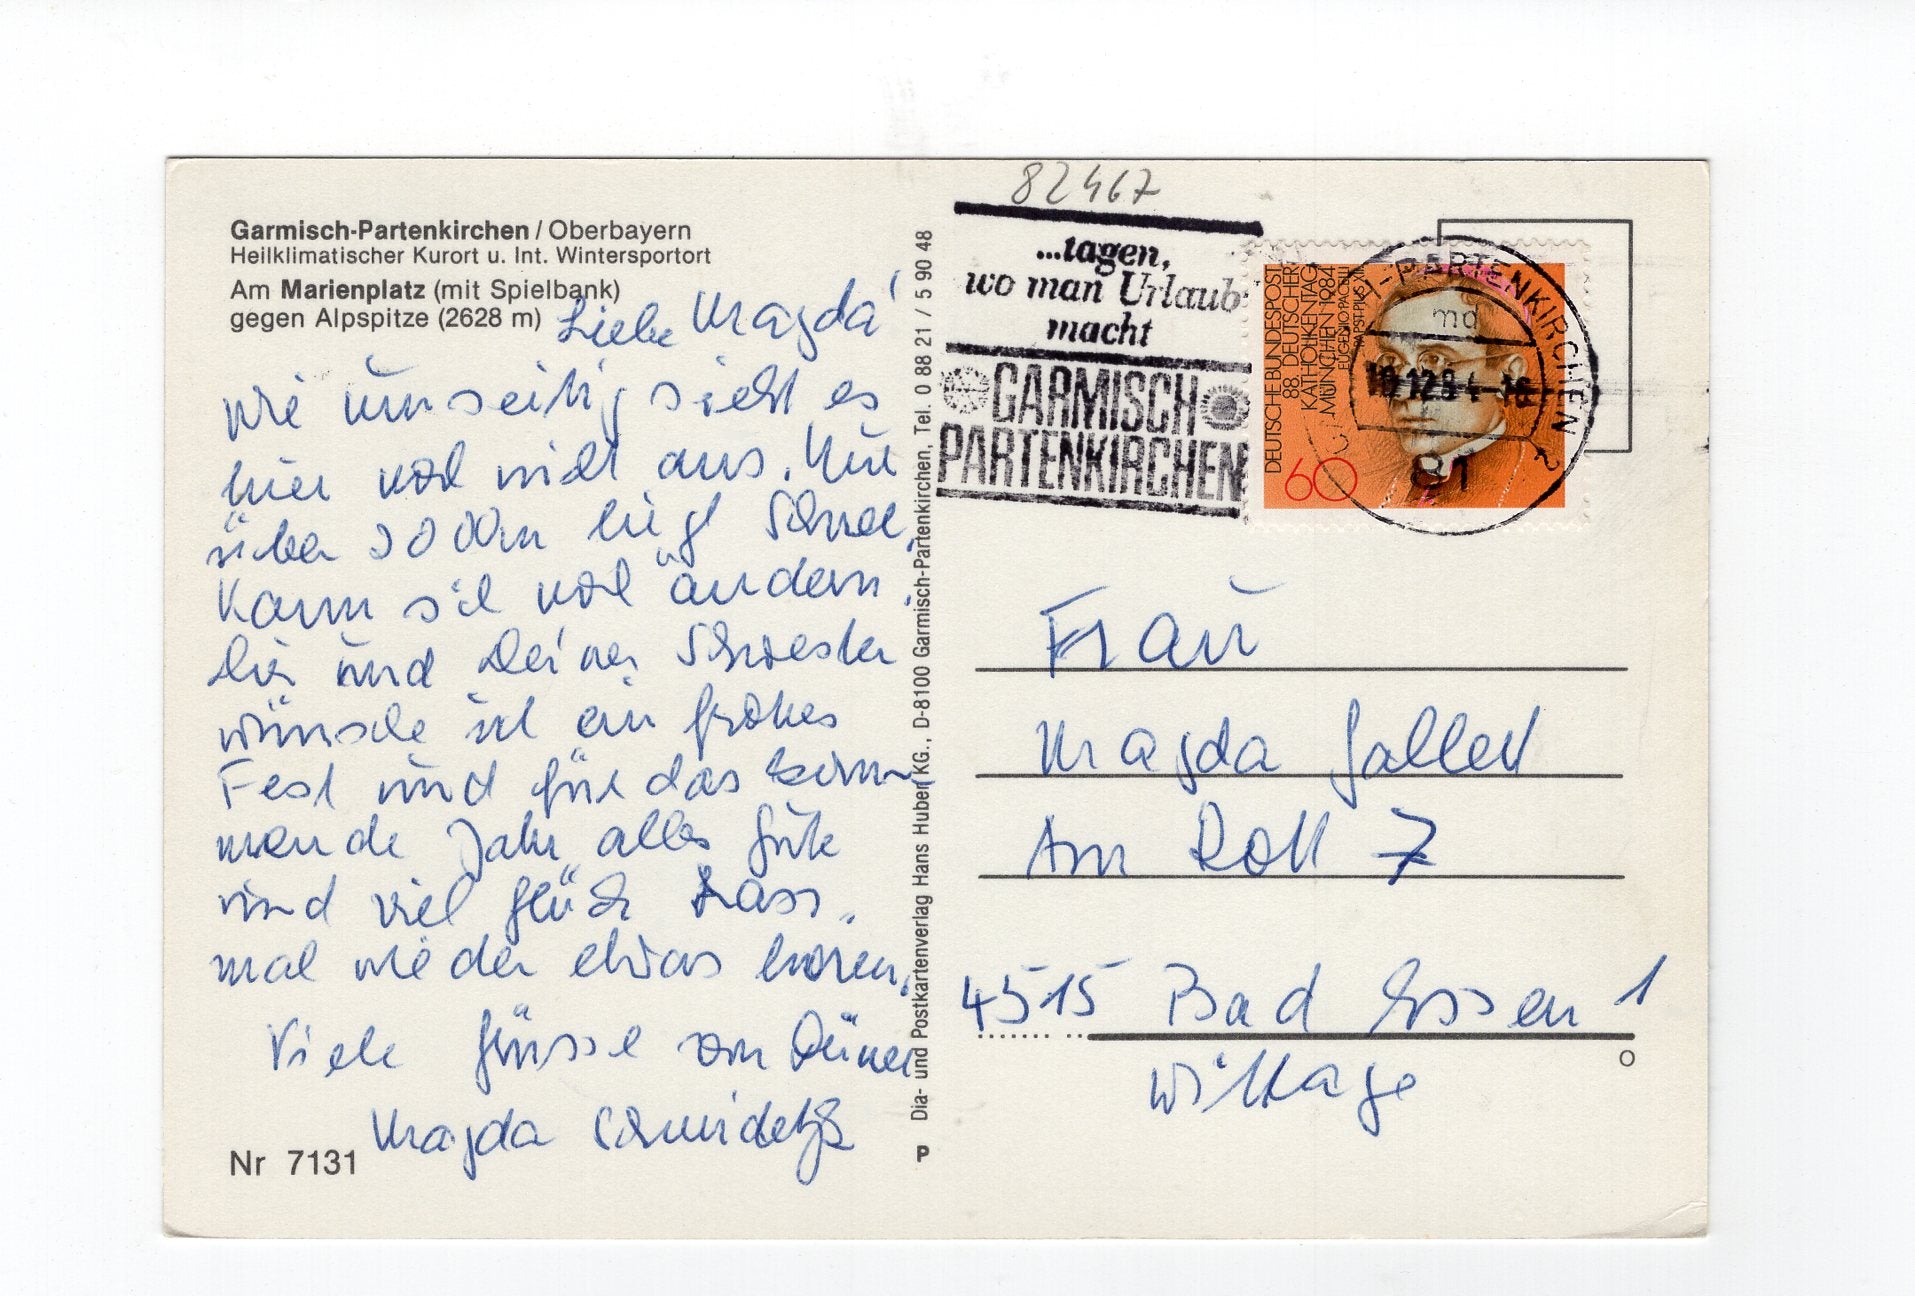 Garmisch-Partenkirchen / Oberbayern
Heilklimatischer Kurort u. Int. Wintersportort
Am Marienplatz (mit Spielbank)
gegen Alpspitze (2628 m)
Liebe Magda
wie umseitig sieht es
hier noch nicht aus. Nur
über 2000m liegt Schnee,
Kann sich noch ändern.
Dir und Deiner Schwester
wünsche ich ein frohes
Fest und für das kom-
mende Jahr alles Gute
und viel Glück. Lass
mal wieder etwas hören.
Viele Grüsse von Deiner
Magda
Nr 7131
Dia- und Postkartenverlag Hans Huber KG., D-8100 Garmisch-Partenkirchen, Tel. 0 88 21 / 5 90 48
P
82467
...tagen,
wo man Urlaub
macht
GARMISCH
PARTENKIRCHEN
DEUTSCHE BUNDESPOST
88. DEUTSCHER
KATHOLIKENTAG
MÜNCHEN 1984
EUGENIO PACELLI
PAPST PIUS XII.
60
-PARTENKIRCHEN 2
md
12.84-16
81
Frau
Magda
Am 7
4515 Bad Essen 1
Wittlage
O